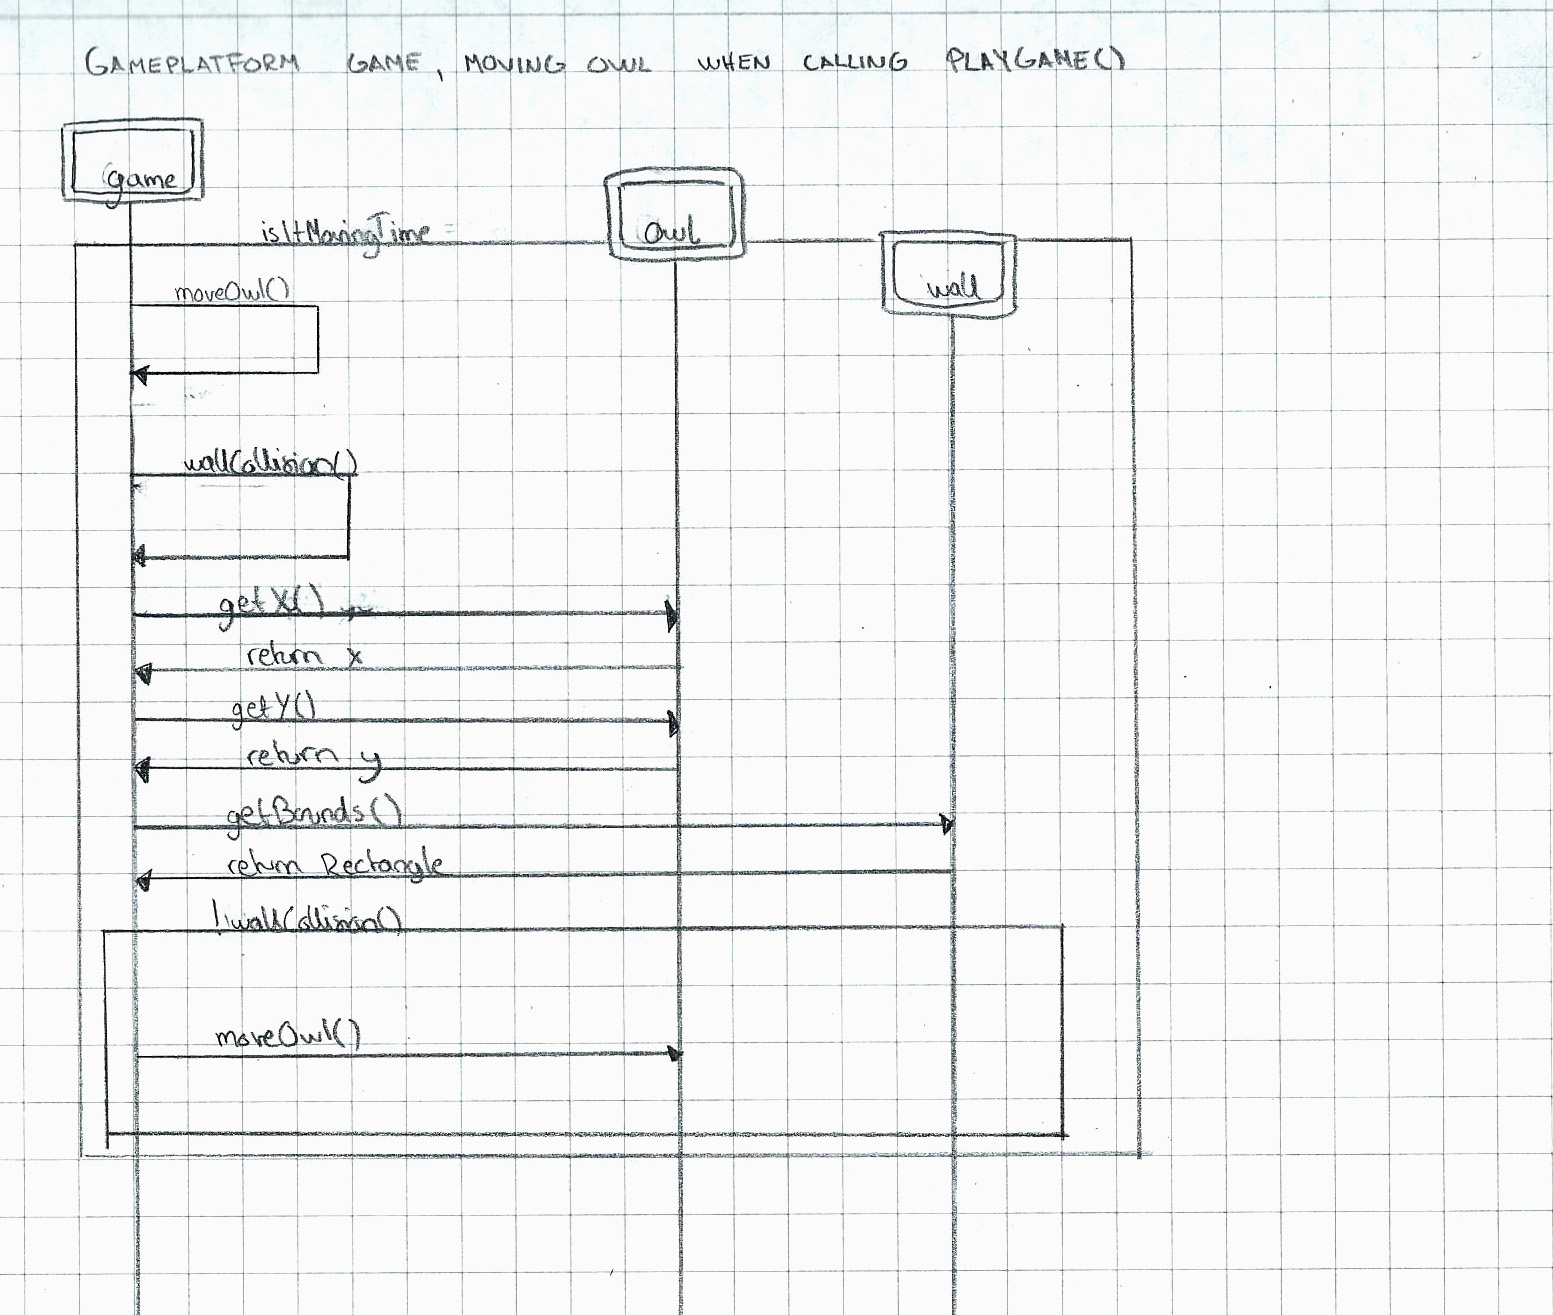 GAMEPLATFORM GAME, MOVING OWL WHEN CALLING PLAYGAME()
game
owl
isItMovingTime =
wall
moveOwl()
wallCollision()
getX()
return x
getY()
return y
getBounds()
return Rectangle
!wallCollision()
moveOwl()